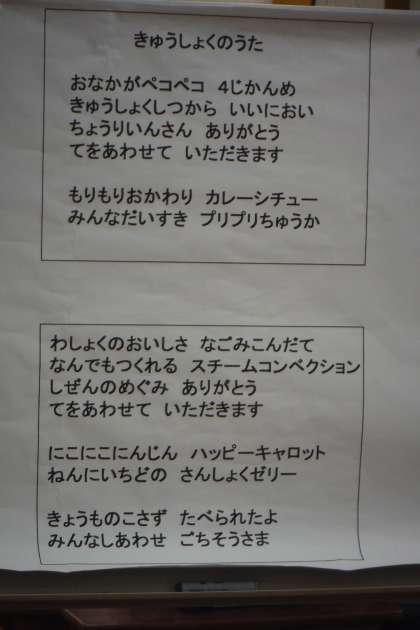 きゅうしょくのうた
おなかがペコペコ 4じかんめ
きゅうしょくしつから いいにおい
ちょうりいんさん ありがとう
てをあわせて いただきます
もりもりおかわり カレーシチュー
みんなだいすき プリプリちゅうか
わしょくのおいしさ なごみこんだて
なんでもつくれる スチームコンベクション
しぜんのめぐみ ありがとう
てをあわせて いただきます
にこにこにんじん ハッピーキャロット
ねんにいちどの さんしょくゼリー
きょうものこさず たべられたよ
みんなしあわせ ごちそうさま